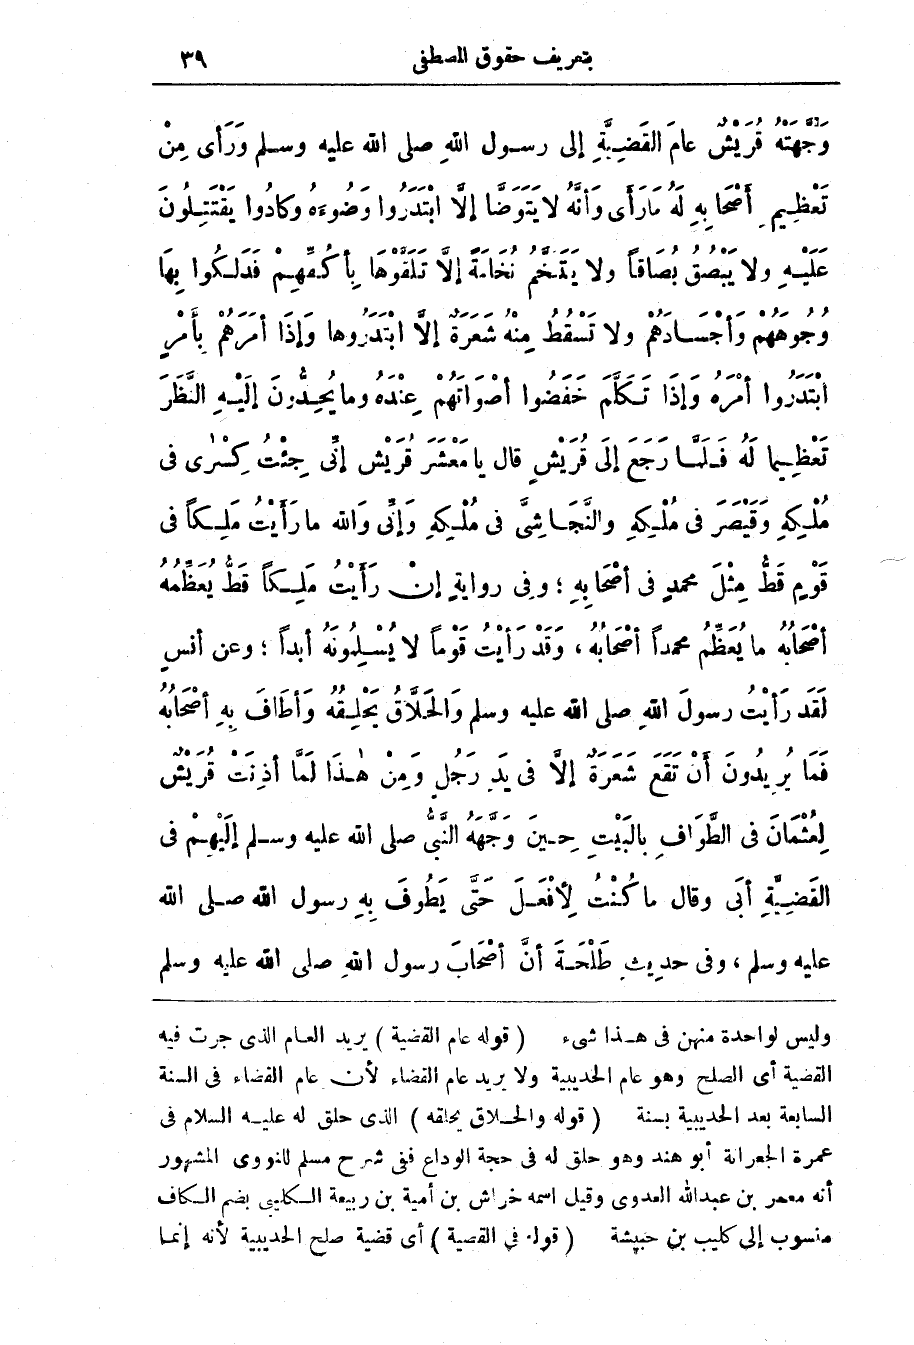 بتعريف حقوق المصطفى ٣٩
وَجَّهَتْهُ قُرَيْشٌ عامَ القَضِيَّةِ إلى رسـول اللهِ صلى الله عليه وسـلم وَرَأى مِنْ
تَعْظِـيمِ أَصْحَابِهِ لَهُ مَارَأَى وَأَنَّهُ لا يَتَوَضَّأ إلَّا ابْتَدَرُوا وَضُوءَهُ وكادُوا يَقْتَتِـلُونَ
عَلَيْـهِ ولا يَبْصُقُ بُصَاقاً ولا يَتَنَخَّمُ نُخَامَةً إلَّا تَلَقَّوْهَا بِأَكُـفِّهِـمْ فَدَلَـكُوا بِهَا
وُجُوهَهُمْ وَأَجْسَـادَهُمْ ولا تَسْقُطُ مِنْهُ شَعَرَةٌ إلَّا ابْتَدَرُوها وَإِذَا أَمَرَهُمْ بِأَمْرٍ
ابْتَدَرُوا أَمْرَهُ وَإِذَا تَـكَلَّمَ خَفَضُوا أصْوَاتَهُمْ عِنْدَهُ وما يُحِـدُّونَ إلَيْـهِ النَّظَرَ
تَعْظِـيما لَهُ فَـلَمَّـا رَجَعَ إلَى قُرَيْشٍ قال يا مَعْشَرَ قُرَيْش إنِّى جِئْتُ كِسْرٰى فى
مُلْـكِهِ وَقَيْصَرَ فى مُلْـكِهِ والنَّجَـاشِىَّ فى مُلْـكِهِ وَإنِّى وَالله ما رَأَيْتُ مَلِـكاً فى
قَوْمٍ قَطُّ مِثْلَ محمدٍ فى أصْحَابِهِ ؛ وفى روايةٍ إنْ رَأَيْتُ مَلِـكاً قَطُّ يُعَظِّمُهُ
أصْحَابُهُ ما يُعَظِّمُ محمداً أصْحَابُهُ، وَقَدْ رَأَيْتُ قَوْماً لا يُسْـلِمُونَهُ أبداً ؛ وعن أنسٍ
لَقَد رَأَيْتُ رسولَ اللهِ صلى الله عليه وسلم وَالحَلَّاقُ يَحْلِـقُهُ وَأَطَافَ بِهِ أصْحَابُهُ
فَمَا يُرِيدُونَ أَنْ تَقَعَ شَعَرَةٌ إلَّا فى يَدِ رَجُلٍ وَمِنْ هٰـذَا لَمَّا أَذِنَتْ قُرَيْشٌ
لِعُثْمَانَ فى الطَّوَافِ بِالْبَيْتِ حِـينَ وَجَّهَهُ النَّبىُّ صلى الله عليه وسـلم إلَيْهِـمْ فى
القَضِيَّةِ أبَى وقال ما كُنْتُ لِأَفْعَـلَ حَتَّى يَطُوفَ بِهِ رسول الله صـلى الله
عليه وسلم ، وفى حديثِ طَلْحَـةَ أنَّ أصْحَابَ رسول اللهِ صلى الله عليه وسلم
وليس لواحدة منهن فى هـذا شىء ( قوله عام القضية ) يريد العـام الذى جرت فيه
القضية أى الصلح وهو عام الحديبية ولا يريد عام القضاء لأن عام القضاء فى السنة
السابعة بعد الحديبية بسنة ( قوله والحـلاق يحلقه ) الذى حلق له عليـه السلام فى
عمرة الجعرانة أبو هند وهو حلق له فى حجة الوداع ففى شرح مسلم للنووى المشهور
أنه معمر بن عبدالله العدوى وقيل اسمه خراش بن أمية بن ربيعة الـكليبى بضم الـكاف
منسوب إلى كليب بن حبيشة ( قوله فى القصية ) أى قضية صلح الحديبية لأنه إنمـا